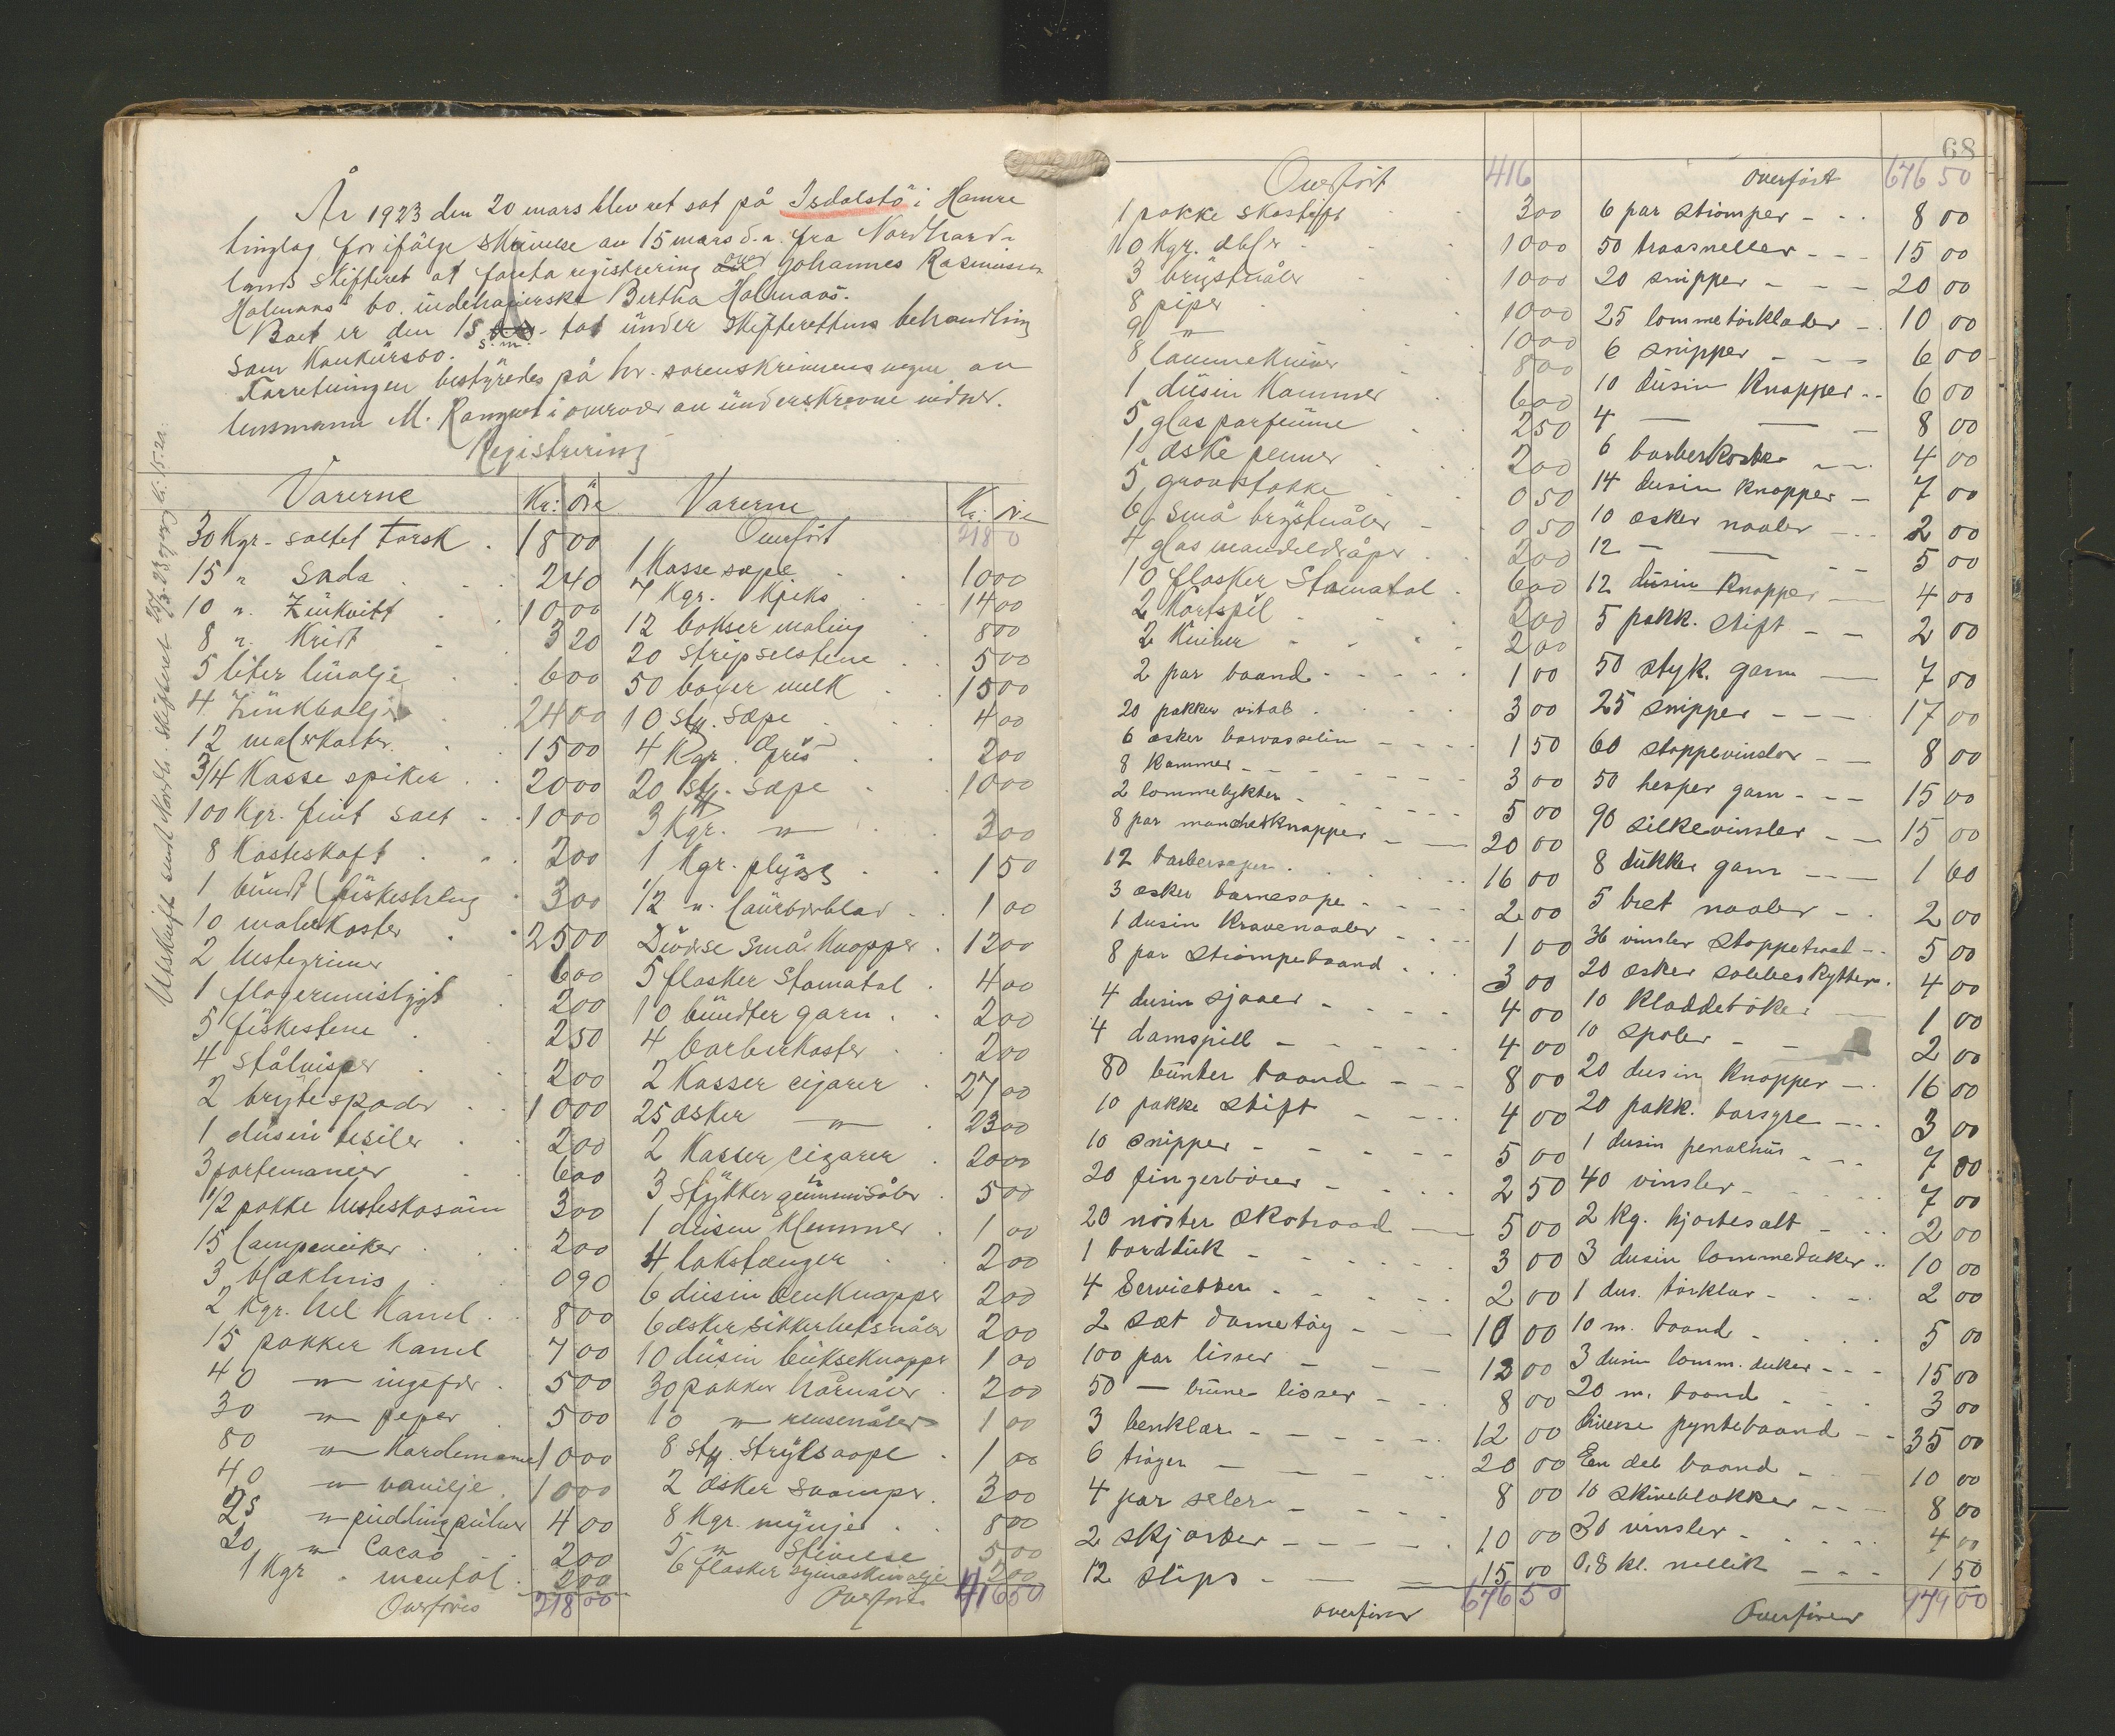 År 1923 den 20 mars blev ret sat på Isdalstö i Hamre
tinglag for ifölge skrivelse av 15 mars d.a. fra Nordhord-
lands skifteret at foreta registrering over Johannes Rasmussen
Holmaas' bo. indehaverske Bertha Holmaas.
Boet er den 15 s.m. tat under skifterettens behandling
som konkursbo.
Forretningen bestyredes på hr. sorenskriverens vegne av
lensmann M. i overvær av underskrevne vidner.
Registrering
Utskrift sendt Nordh. skifteret
Varerne Kr: Öre
30 Kgr. saltet Torsk 18 00
15 " Soda 2 40
10 " Zinkvitt 10 00
8 " Kritt 3 20
5 liter linolje 6 00
4 Zinkbaljer 24 00
12 malerkoster 15 00
3/4 Kasse spiker 20 00
100 Kgr. fint salt 10 00
8 Kosteskaft 2 00
1 bundt fiskestreng 3 00
10 malerkoster 25 00
2 hestegrimer 6 00
1 2 00
5 fiskestene 2 50
4 stålvisper 2 00
2 brytespader 10 00
1 dusin besiler 2 00
3 portemonæer 6 00
1/2 pakke hesteskosöm 3 00
15 lampeveiker 2 00
3 blækhus 0 90
2 Kgr. hel Kanel 8 00
15 pakker Kanel 7 00
40 " ingefær 5 00
30 " peper 5 00
80 " Kardemome 10 00
40 " vanilje 10 00
25 " puddingpulver 4 00
20 " Cacao 2 00
1 Kgr. mentol 2 00
Overföres 218 00
Varerne Kr: öre
Overfört 218 0
1 Kasse sæpe 10 00
7 Kgr. Kjeks 14 00
12 bokser maling 8 00
20 Stripselstene 5 00
50 boxer melk 15 00
10 sty. Sæpe 4 00
4 Kgr. Gris 2 00
20 sty. sæpe 10 00
3 Kgr. " 3 00
1 Kgr. plygg 1 50
1/2 " laurbærblad 1 00
Diverse små Knapper 12 00
5 flasker Stomatol 4 00
10 bundter garn 2 00
4 barberkoster 2 00
2 Kasser cigarer 27 00
25 æsker " 23 00
2 Kasser cigarer 20 00
3 Stykker gummisåler 5 00
1 dusin Klemmer 1 00
4 lakstænger 2 00
6 dusin benknapper 2 00
6 æsker sikkerhetsnåler 2 00
10 dusin bukseknapper 1 00
30 pakker hårnåler 2 00
10 " 1 00
8 sty. Stryksaape 1 00
2 æsker svamper 3 00
8 Kgr. mynje 8 00
5 " Stivelse 5 00
6 flasker symaskinolje 2 00
Overföres 416 50
Overfört 416
1 pakke skostift 3 00
10 Kgr. 10 00
3 brystnåler 10 00
8 piper 10 00
9 " 10 00
8 lommekniver 8 00
1 dusin Kammer 6 00
5 glas parfeume 2 50
1 æske penner 2 00
5 gravstokke 0 50
6 små brystnåler 0 50
4 glas mandeldråper 2 00
10 flasker Stomatol 6 00
2 Kortspil 2 00
2 Kniver 2 00
2 par baand 1 00
20 pakker vitol 3 00
6 æsker borvasselin 1 50
8 kammer 3 00
2 lommelykter 5 00
8 par manchetknapper 20 00
12 barbersæper 16 00
3 æsker barnesæpe 2 00
1 dusin kravenaaler 1 00
8 par strömpebaand 3 00
4 dusin sjaaer 4 00
4 damspill 4 00
80 bunter baand 8 00
10 pakke stift 4 00
10 snipper 5 00
20 fingerböier 2 50
20 nöster skotraad 5 00
1 bordduk 3 00
4 Servietter 2 00
2 sæt dametöy 10 00
100 par lisser 12 00
50 — brune lisser 8 00
3 benklær 12 00
6 tröyer 20 00
4 par seler 8 00
2 skjorter 10 00
12 slips 15 00
overföres 676 50
68
Overfört 676 50
6 par strömper 8 00
50 traasneller 15 00
20 snipper 20 00
25 lommetörklæder 10 00
6 snipper 6 00
10 dusin knapper 6 00
4 — — 8 00
6 barberkoster 4 00
14 dusin knapper 7 00
10 æsker naaler 2 00
12 — — 5 00
12 dusin knapper 4 00
5 pakk. stift 2 00
50 styk. garn 7 00
25 snipper 17 00
60 stoppevinsler 8 00
50 hesper garn 15 00
90 silkevinsler 15 00
8 dukker garn 1 60
5 bret naaler 2 00
36 vinsler stoppetraad 5 00
20 æsker 4 00
10 kladdebøker 1 00
10 spoler 2 00
20 dusin knapper 16 00
20 pakk. borsyre 3 00
1 dusin penalhus 7 00
40 vinsler 7 00
2 kg. hjortesalt 2 00
3 dusin lommeduker 10 00
1 dus. törklær 2 00
10 m. baand 5 00
3 dusin lomm. duker 15 00
20 m. baand 3 00
Diverse pyntebaand 35 00
Een del baand 10 00
10 skriveblokker 8 00
30 vinsler 4 00
0,8 kl. nellik 1 50
Overföres 979 00